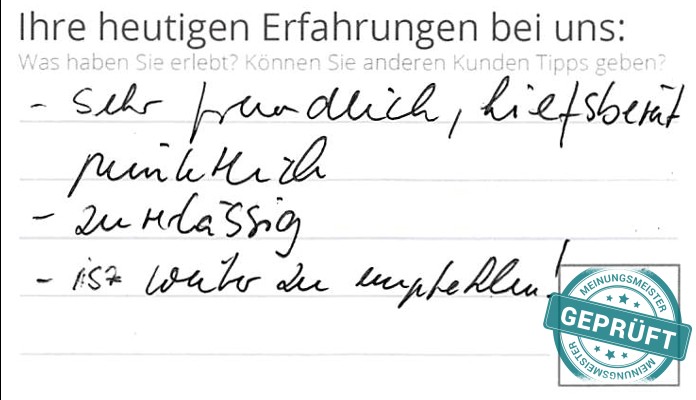 Ihre heutigen Erfahrungen bei uns:
Was haben Sie erlebt? Können Sie anderen Kunden Tipps geben?
- sehr freundlich, hilfsbereit
pünktlich
- zuverlässig
- ist weiter zu empfehlen!
MEINUNGSMEISTER
GEPRÜFT
MEINUNGSMEISTER